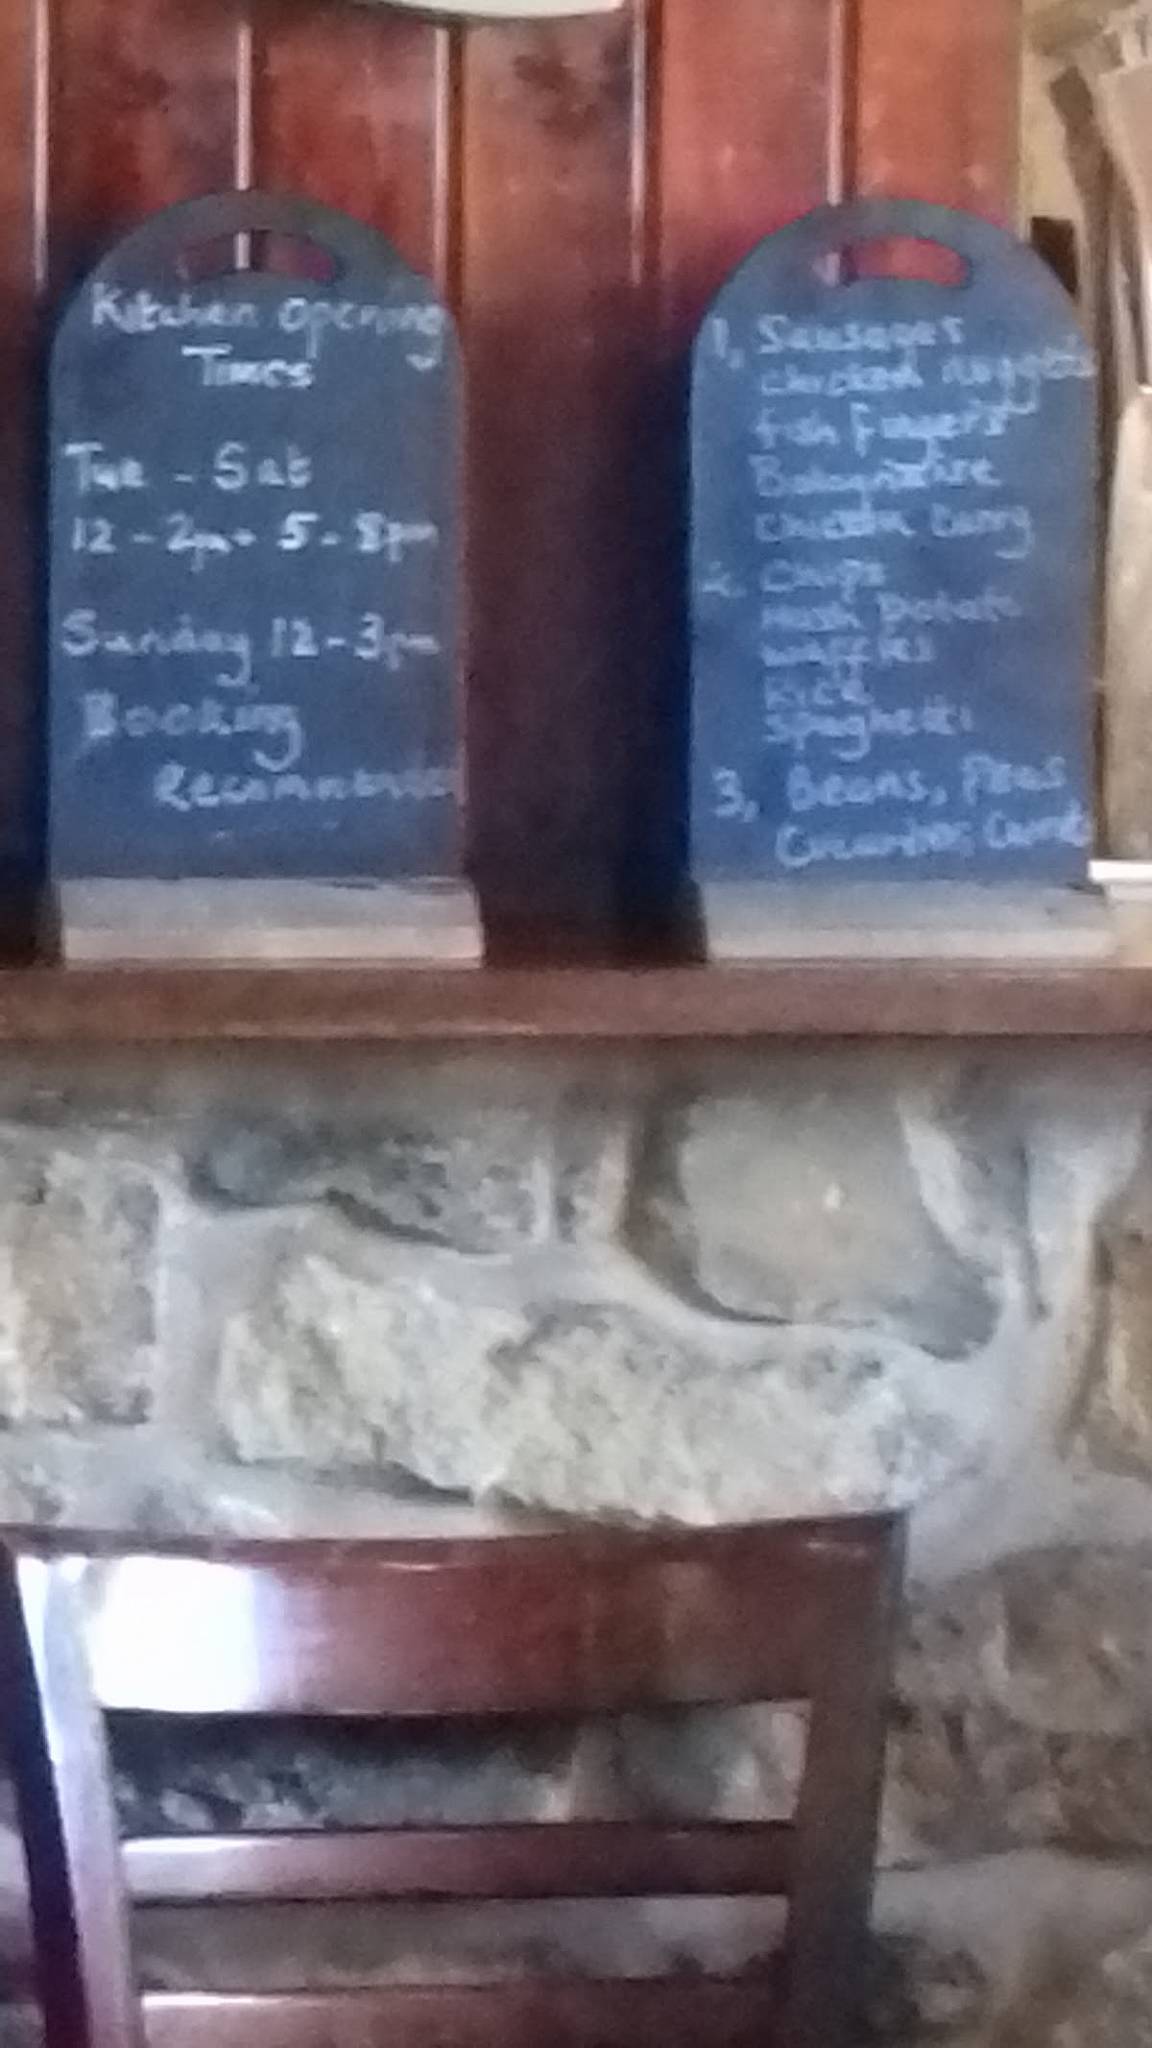 Kitchen Opening
Times
Tue - Sat
12 - 2pm + 5 - 8pm
Sunday 12 - 3pm
Booking
Recommended
1, Sausages
chicken nuggets
fish fingers
Bolognaise
chicken curry
2, Chips
Mash Potato
waffles
Rice
Spaghetti
3, Beans, Peas
Cucumber,